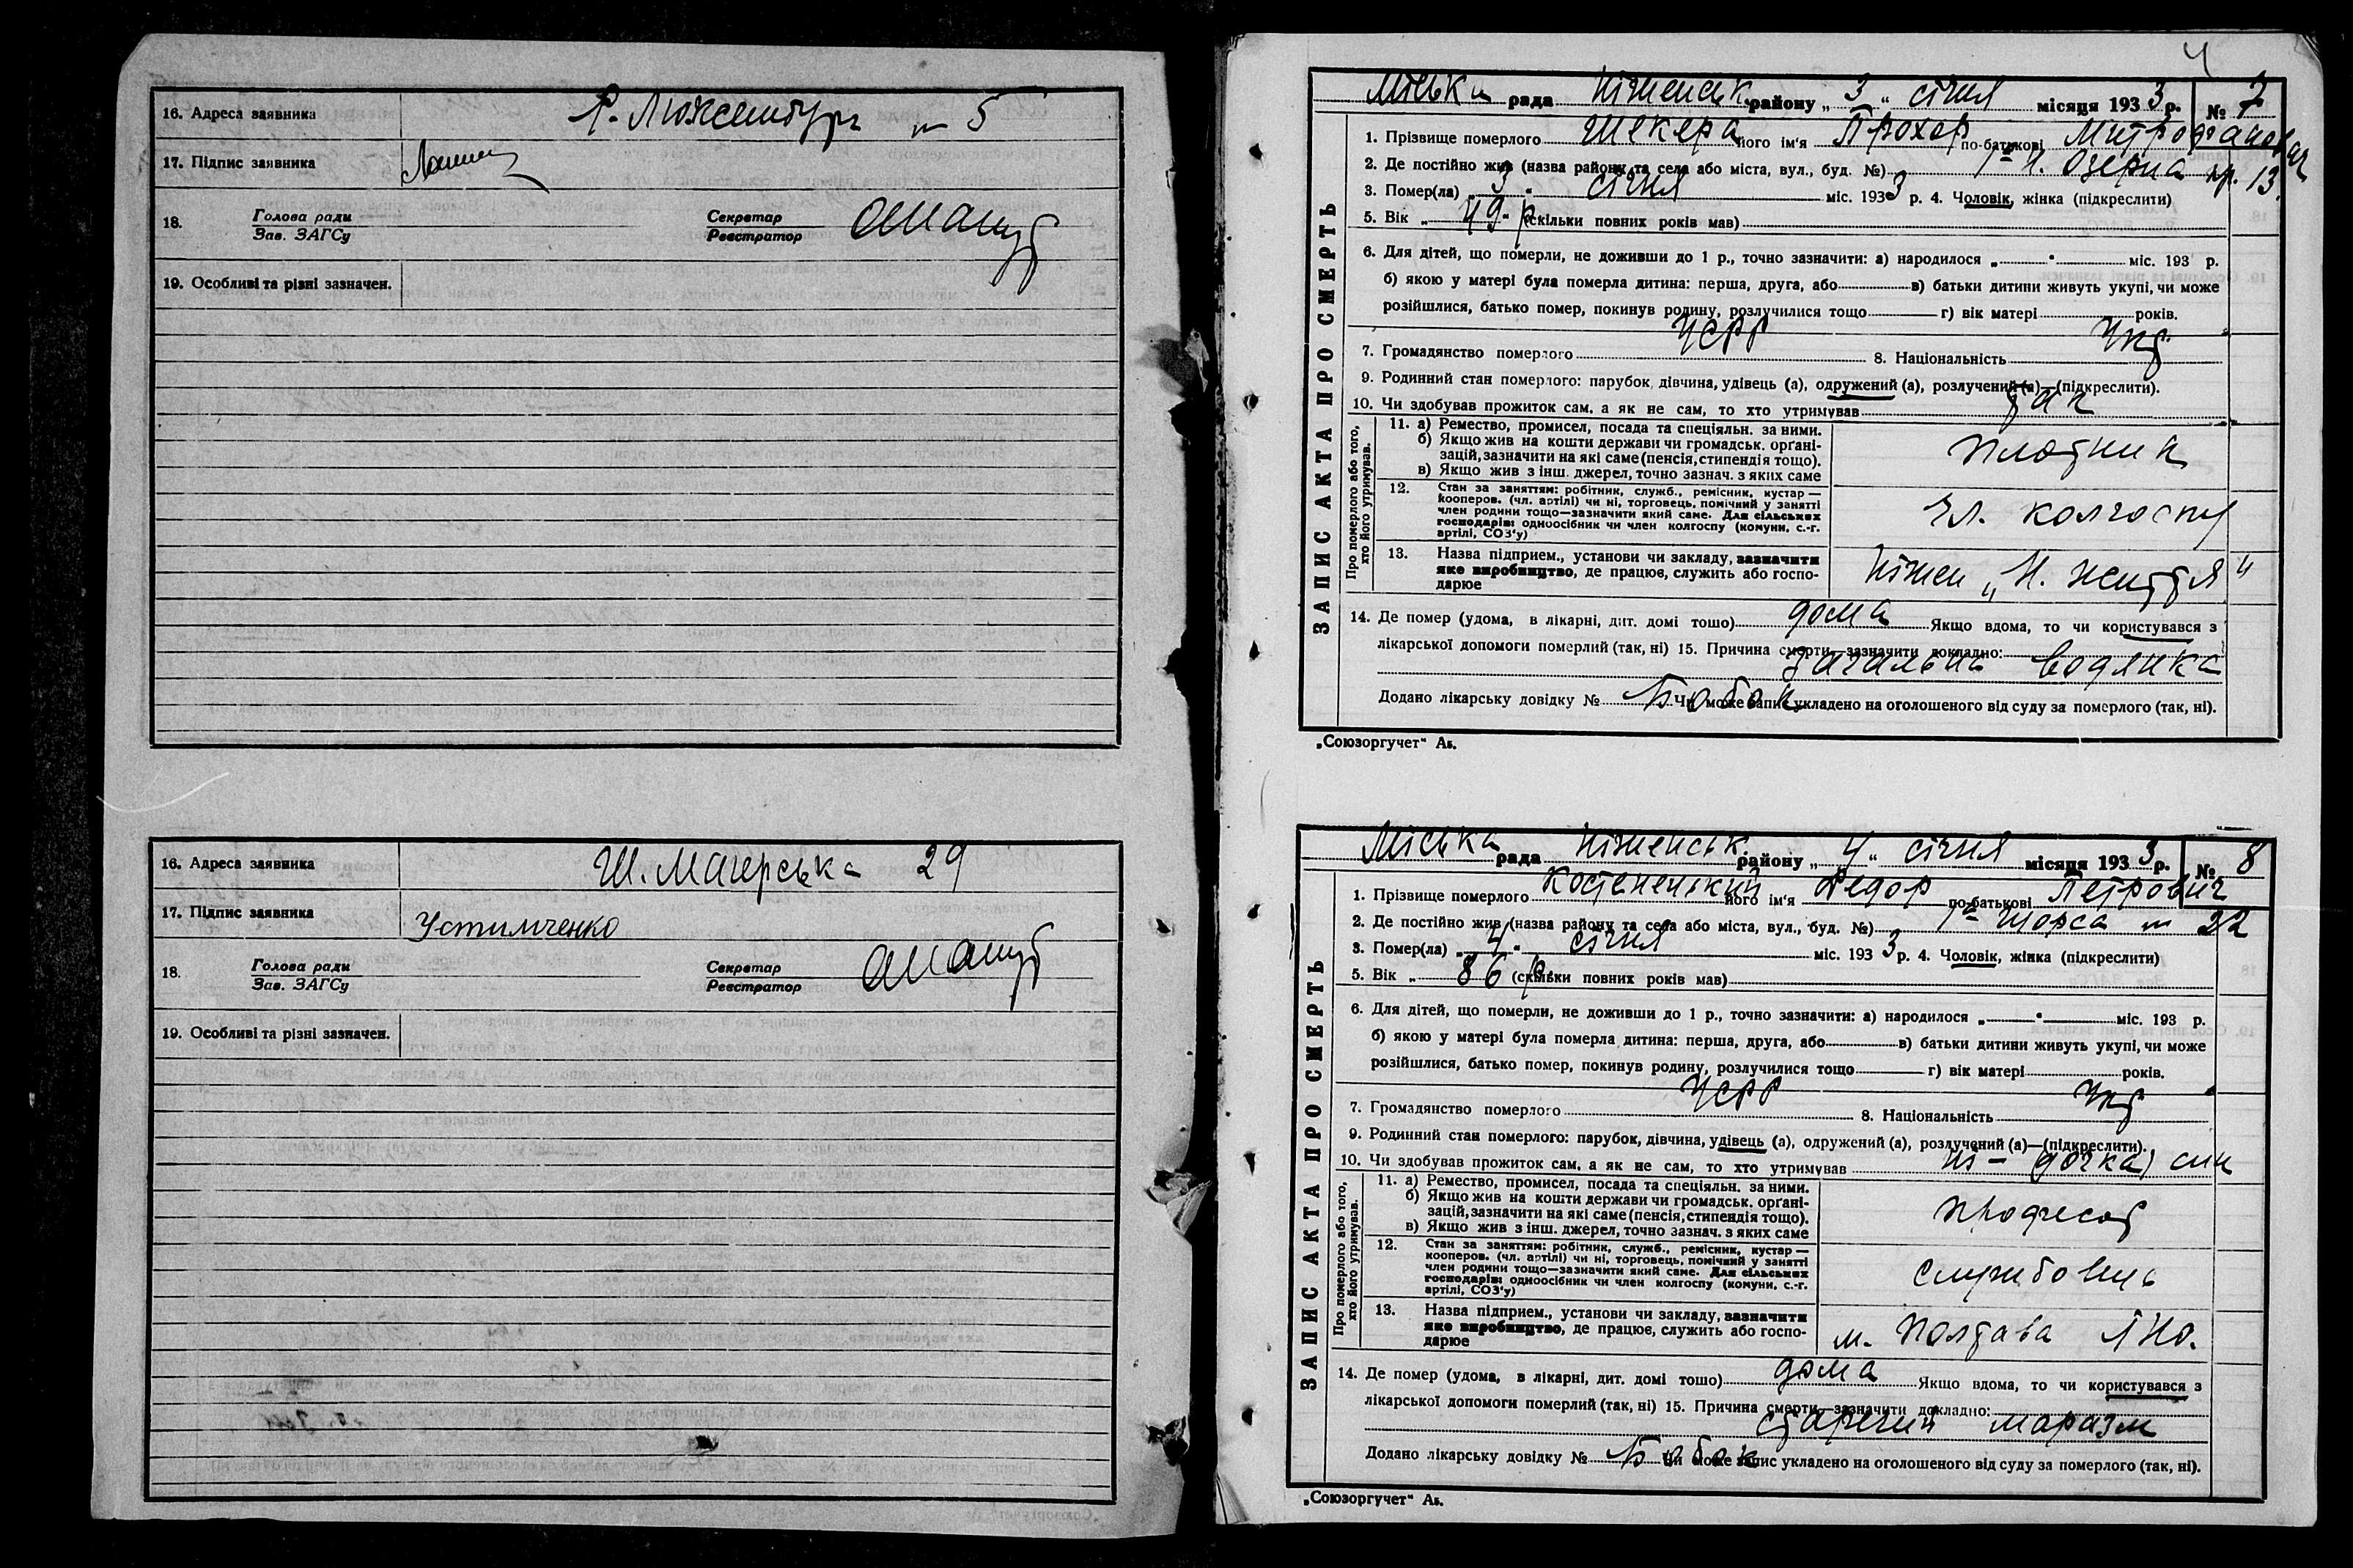 16. Адреса заявника Р. Люксембург № 5
17. Підпис заявника
18. Голова ради Секретар
Зав. ЗАГСу Реєстратор
19. Особливі та різні зазначен.
16. Адреса заявника Ш. Магерська 29
17. Підпис заявника Устимченко
18. Голова ради Секретар
Зав. ЗАГСу Реєстратор
19. Особливі та різні зазначен.
4
Міська рада Ніженськ району „3“ січня місяця 1933 р. № 7
ЗАПИС АКТА ПРО СМЕРТЬ
1. Прізвище померлого Шекера його ім'я Прохор по-батькові Митрофанович
2. Де постійно жив (назва району та села або міста, вул., буд. №) Н. Озерна 13
3. Помер(ла) „3“ січня міс. 1933 р. 4. Чоловік, жінка (підкреслити)
5. Вік „49“ р. (скільки повних років мав)
6. Для дітей, що померли, не доживши до 1 р., точно зазначити: а) народилося „ “ міс. 193 р.
б) якою у матері була померла дитина: перша, друга, або в) батьки дитини живуть укупі, чи може
розійшлися, батько помер, покинув родину, розлучилися тощо г) вік матері років.
7. Громадянство померлого УСРР 8. Національність Укр
9. Родинний стан померлого: парубок, дівчина, удівець (а), одружений (а), розлучений (а)—(підкреслити).
10. Чи здобував прожиток сам, а як не сам, то хто утримував так
Про померлого або того, хто його утримував.
11. а) Ремество, промисел, посада та спеціяльн. за ними.
б) Якщо жив на кошти держави чи громадськ. орґані-
зацій, зазначити на які саме (пенсія, стипендія тощо).
в) Якщо жив з інш. джерел, точно зазнач. з яких саме
плотник
12. Стан за заняттям: робітник, служб., ремісник, кустар —
кооперов. (чл. артілі) чи ні, торговець, помічний у занятті
член родини тощо—зазначити який саме. Для сільських
господарів: одноосібник чи член колгоспу (комуни, с.-г.
артілі, СОЗ'у)
чл. колгоспу
13. Назва підприєм., установи чи закладу, зазначити
яке виробництво, де працює, служить або госпо-
дарює
Ніжен „Н. життя“
14. Де помер (удома, в лікарні, дит. домі тощо) дома Якщо вдома, то чи користувався з
лікарської допомоги померлий (так, ні) 15. Причина смерти—зазначити докладно:
загальна водянка
Додано лікарську довідку № Бабак Чи може запис укладено на оголошеного від суду за померлого (так, ні).
„Союзоргучет“ Аб.
Міська рада Ніженськ. району „4“ січня місяця 1933 р. № 8
ЗАПИС АКТА ПРО СМЕРТЬ
1. Прізвище померлого Костенецький його ім'я Федор по-батькові Петрович
2. Де постійно жив (назва району та села або міста, вул., буд. №) Щорса № 22
3. Помер(ла) „4“ січня міс. 1933 р. 4. Чоловік, жінка (підкреслити)
5. Вік „86 р. (скільки повних років мав)
6. Для дітей, що померли, не доживши до 1 р., точно зазначити: а) народилося „ “ міс. 193 р.
б) якою у матері була померла дитина: перша, друга, або в) батьки дитини живуть укупі, чи може
розійшлися, батько помер, покинув родину, розлучилися тощо г) вік матері років.
7. Громадянство померлого УСРР 8. Національність Укр
9. Родинний стан померлого: парубок, дівчина, удівець (а), одружений (а), розлучений (а)—(підкреслити).
10. Чи здобував прожиток сам, а як не сам, то хто утримував ні – (дочка) син
Про померлого або того, хто його утримував.
11. а) Ремество, промисел, посада та спеціяльн. за ними.
б) Якщо жив на кошти держави чи громадськ. орґані-
зацій, зазначити на які саме (пенсія, стипендія тощо).
в) Якщо жив з інш. джерел, точно зазнач. з яких саме
професор
12. Стан за заняттям: робітник, служб., ремісник, кустар —
кооперов. (чл. артілі) чи ні, торговець, помічний у занятті
член родини тощо—зазначити який саме. Для сільських
господарів: одноосібник чи член колгоспу (комуни, с.-г.
артілі, СОЗ'у)
службовець
13. Назва підприєм., установи чи закладу, зазначити
яке виробництво, де працює, служить або госпо-
дарює
м. Полтава ІНО.
14. Де помер (удома, в лікарні, дит. домі тощо) дома Якщо вдома, то чи користувався з
лікарської допомоги померлий (так, ні) 15. Причина смерти—зазначити докладно:
старечий маразм
Додано лікарську довідку № Бабак Чи може запис укладено на оголошеного від суду за померлого (так, ні).
„Союзоргучет“ Аб.